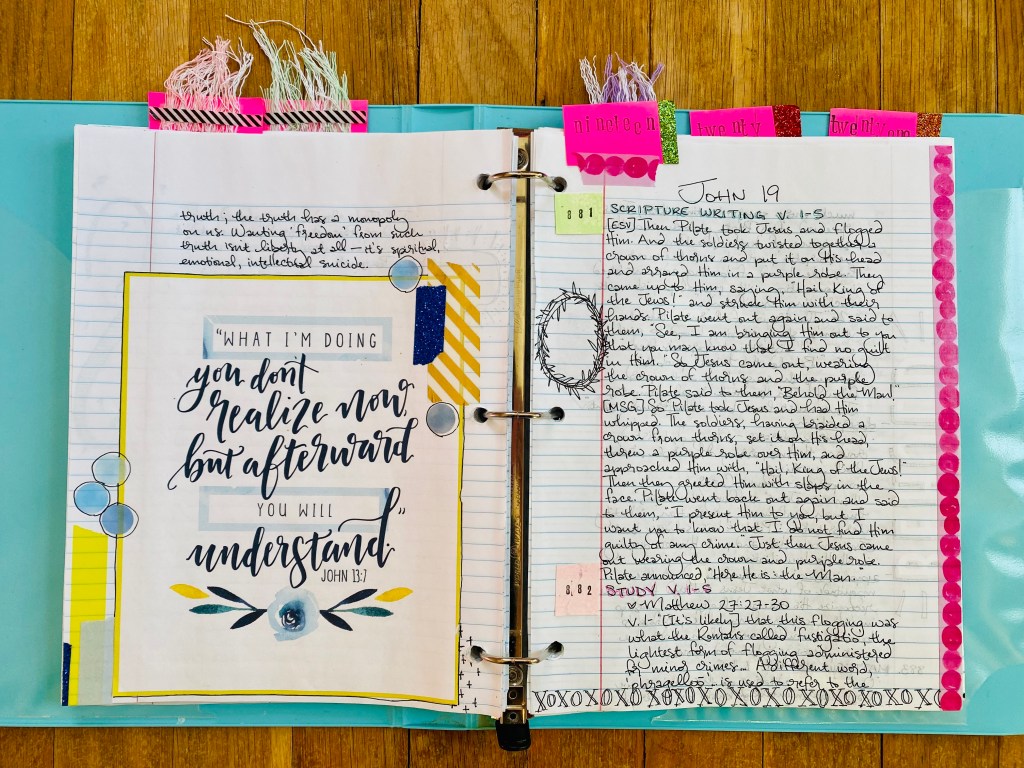 truth; the truth has a monopoly
on us. Wanting 'freedom' from such
truth isn't liberty at all — it's spiritual,
emotional, intellectual suicide.
"WHAT I'M DOING
you don't
realize now,
but afterward
YOU WILL
understand."
JOHN 13:7
nineteen
twenty
twentyone
JOHN 19
881
SCRIPTURE WRITING V. 1-5
[ESV] Then Pilate took Jesus and flogged
Him. And the soldiers twisted together a
crown of thorns and put it on His head
and arrayed Him in a purple robe. They
came up to Him, saying, "Hail, King of
the Jews!" and struck Him with their
hands. Pilate went out again and said to
them, "See, I am bringing Him out to you
that you may know that I find no guilt
in Him." So Jesus came out, wearing
the crown of thorns and the purple
robe. Pilate said to them, "Behold the Man!"
[MSG] So Pilate took Jesus and had Him
whipped. The soldiers, having braided a
crown from thorns, set it on His head,
threw a purple robe over Him, and
approached Him with, "Hail, King of the Jews!"
Then they greeted Him with slaps in the
face. Pilate went back out again and said
to them, "I present Him to you, but I
want you to know that I do not find Him
guilty of any crime." Just then Jesus came
out wearing the crown and purple robe.
Pilate announced, "Here He is: the Man."
882
STUDY V. 1-5
♡ Matthew 27:27-30
v. 1- "[It's likely] that this flogging was
what the Romans called 'fustigatio', the
lightest form of flogging administered
for minor crimes... A different word,
'phragelloo'... is used to refer to the
XOXOXOXOXOXOXOXOXOXOXO